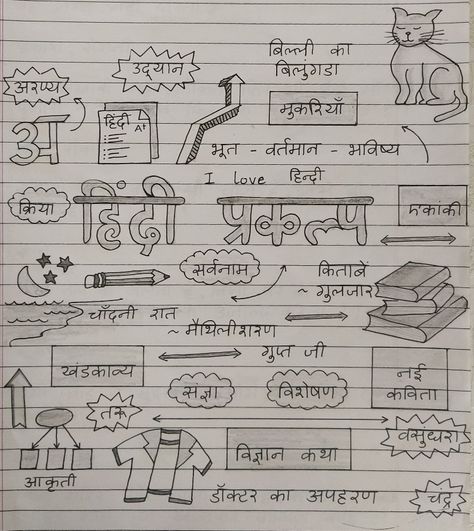 बिल्ली का
बिलुंगडा
उद्यान
अरण्य
अ
हिंदी
A+
मुकरियाँ
भूत - वर्तमान - भविष्य
I love हिन्दी
क्रिया
हिंदी प्रकल्प
एकांकी
सर्वनाम
किताबें
~ गुलजार
चाँदनी रात
~ मैथिलीशरण
गुप्त जी
खंडकाव्य
संज्ञा
विशेषण
नई
कविता
तरू
वसुंधरा
विज्ञान कथा
आकृती
डॉक्टर का अपहरण
चंद्र